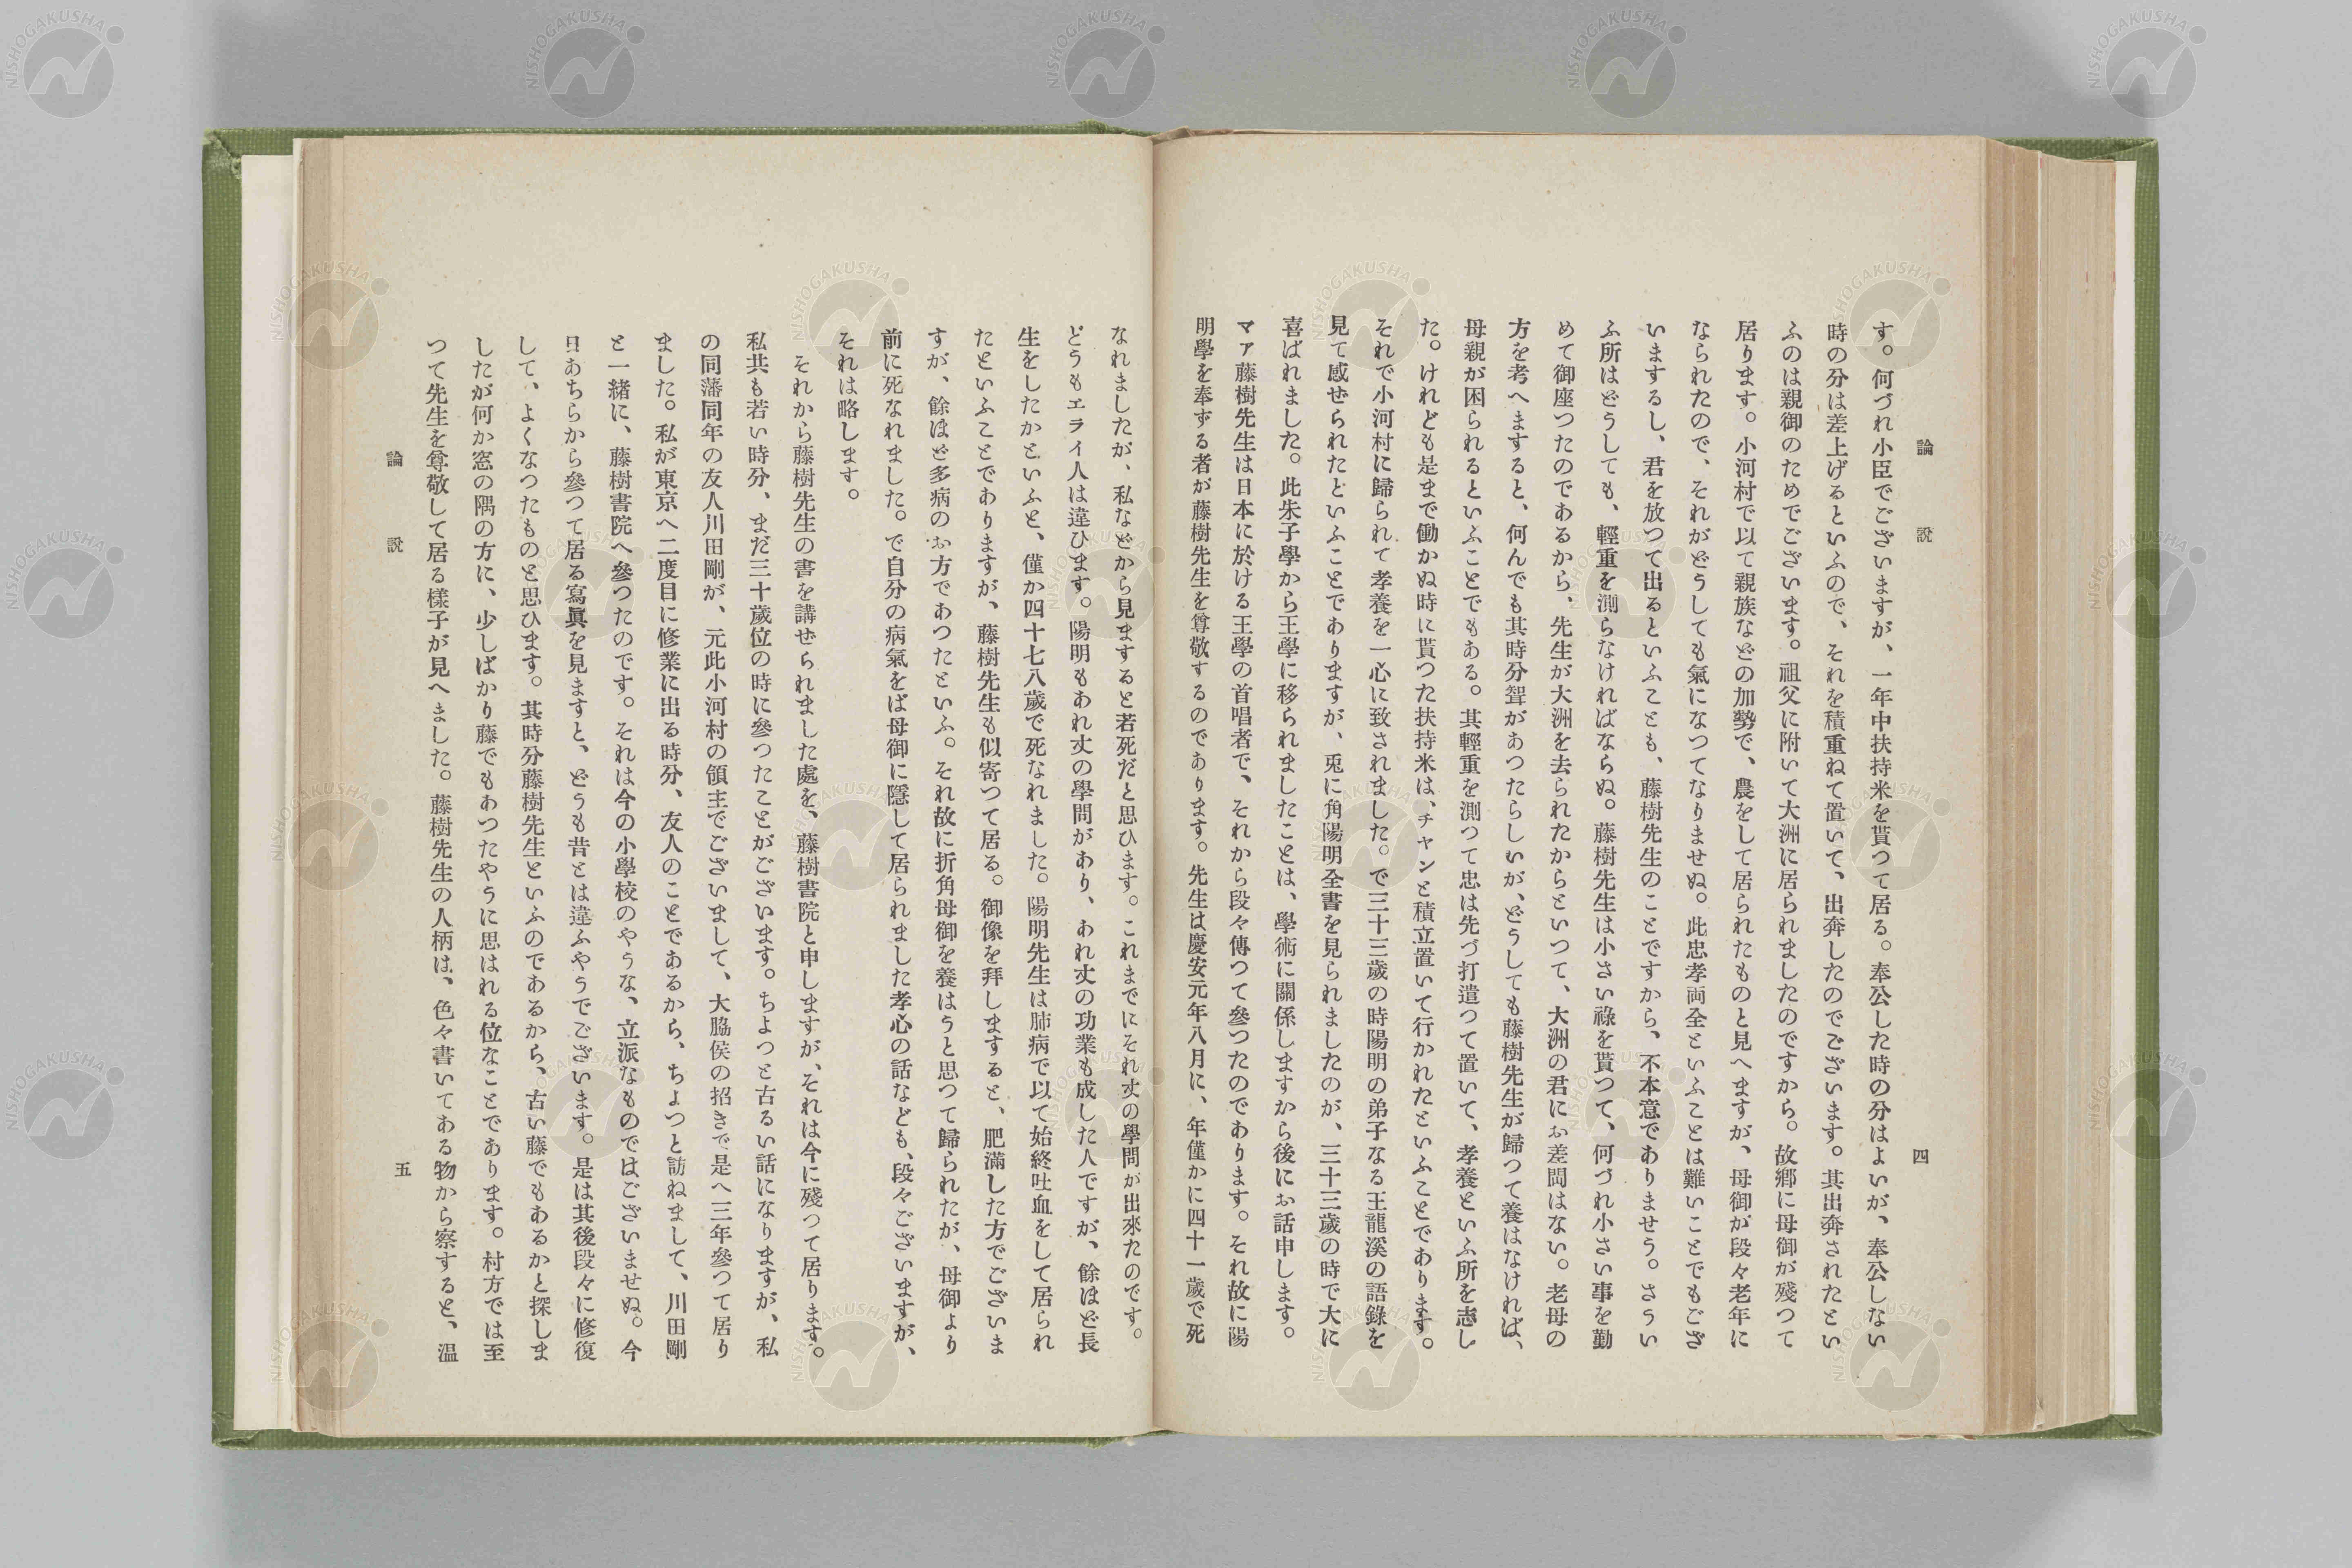 論説
四
す。何づれ小臣でございますが、一年中扶持米を貰つて居る。奉公した時の分はよいが、奉公しない
時の分は差上げるといふので、それを積重ねて置いて、出奔したのでございます。其出奔されたとい
ふのは親御のためでございます。祖父に附いて大洲に居られましたのですから。故鄕に母御が殘つて
居ります。小河村で以て親族などの加勢で、農をして居られたものと見へますが、母御が段々老年に
なられたので、それがどうしても氣になつてなりませぬ。此忠孝両全といふことは難いことでもござ
いまするし、君を放つて出るといふことも、藤樹先生のことですから、不本意でありませう。さうい
ふ所はどうしても、輕重を測らなければならぬ。藤樹先生は小さい祿を貰つて、何づれ小さい事を勤
めて御座つたのであるから、先生が大洲を去られたからといつて、大洲の君にお差閊はない。老母の
方を考へますると、何んでも其時分聟があつたらしいが、どうしても藤樹先生が歸つて養はなければ、
母親が困られるといふことでもある。其輕重を測つて忠は先づ打遣つて置いて、孝養といふ所を志し
た。けれども是まで働かぬ時に貰つた扶持米は、チヤンと積立置いて行かれたといふことであります。
それで小河村に歸られて孝養を一心に致されました。で三十三歲の時陽明の弟子なる王龍溪の語錄を
見て感せられたといふことでありますが、兎に角陽明全書を見られましたのが、三十三歲の時で大に
喜ばれました。此朱子學から王學に移られましたことは、學術に關係しますから後にお話申します。
マア藤樹先生は日本に於ける王學の首唱者で、それから段々傳つて參つたのであります。それ故に陽
明學を奉ずる者が藤樹先生を尊敬するのであります。先生は慶安元年八月に、年僅かに四十一歲で死
なれましたが、私などから見ますると若死だと思ひます。これまでにそれ丈の學問が出來たのです。
どうもエライ人は違ひます。陽明もあれ丈の學問があり、あれ丈の功業も成した人ですが、餘ほど長
生をしたかといふと、僅か四十七八歲で死なれました。陽明先生は肺病で以て始終吐血をして居られ
たといふことでありますが、藤樹先生も似寄つて居る。御像を拜しますると、肥滿した方でございま
すが、餘ほど多病のお方であつたといふ。それ故に折角母御を養はうと思つて歸られたが、母御より
前に死なれました。で自分の病氣をば母御に隱して居られました孝心の話なども、段々ございますが、
それは略します。
それから藤樹先生の書を講せられました處を、藤樹書院と申しますが、それは今に殘つて居ります。
私共も若い時分、まだ三十歲位の時に參つたことがございます。ちよつと古るい話になりますが、私
の同藩同年の友人川田剛が、元此小河村の領主でございまして、大脇侯の招きで是へ三年參つて居り
ました。私が東京へ二度目に修業に出る時分、友人のことであるから、ちよつと訪ねまして、川田剛
と一緒に、藤樹書院へ參つたのです。それは今の小學校のやうな、立派なものではございませぬ。今
日あちらから參つて居る寫眞を見ますと、どうも昔とは違ふやうでございます。是は其後段々に修復
して、よくなつたものと思ひます。其時分藤樹先生といふのであるから、古い藤でもあるかと探しま
したが何か窓の隅の方に、少しばかり藤でもあつたやうに思はれる位なことであります。村方では至
つて先生を尊敬して居る樣子が見へました。藤樹先生の人柄は、色々書いてある物から察すると、溫
論説
五